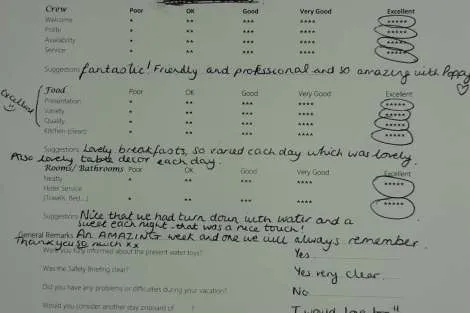 Crew Poor OK Good Very Good Excellent
Welcome * ** *** **** *****
Polity * ** *** **** *****
Availability * ** *** **** *****
Service * ** *** **** *****
Suggestions fantastic! Friendly and professional and so amazing with Poppy ♡
Food Poor OK Good Very Good Excellent
Excellent
Presentation * ** *** **** *****
Variety * ** *** **** *****
Quality * ** *** **** *****
Kitchen (clean) * ** *** **** *****
Suggestions Lovely breakfasts, so varied each day which was lovely.
Also lovely table decor each day.
Rooms/Bathrooms Poor OK Good Very Good Excellent
Neatly * ** *** **** *****
Hotel Service
(Towels, Bed...) * ** *** **** *****
Suggestions Nice that we had turn down with water and a
sweet each night - that was a nice touch!
General Remarks An AMAZING week and one we will always remember.
Thankyou so much xx
Were you fully informed about the present water toys? Yes
Was the Safety Briefing clear? Yes very clear
Did you have any problems or difficulties during your vacation? No
Would you consider another stay onboard of ? I would love to!!